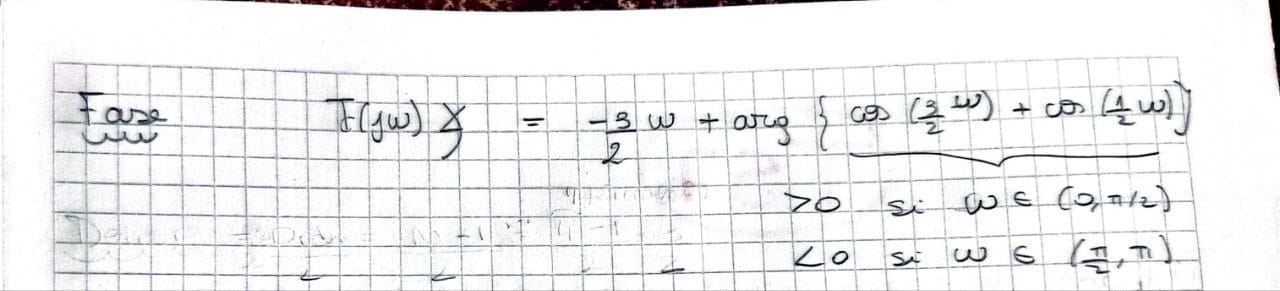 Fase F(jω) ∡ = -3/2 ω + arg { cos (3/2 ω) + cos (1/2 ω) }
>0 si ω ∈ (0, π/2)
<0 si ω ∈ (π/2, π)